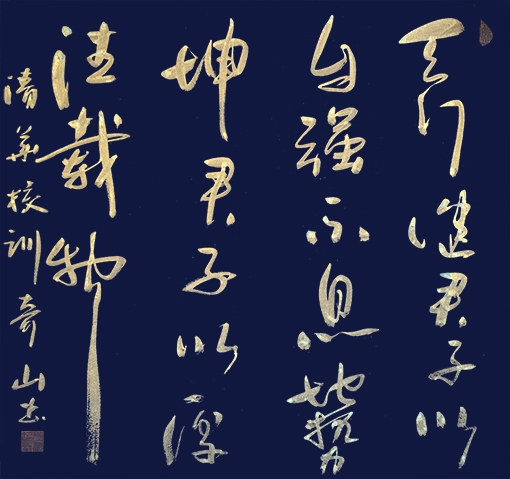 天行健君子以
自强不息地势
坤君子以厚
德載物
清華校训奇山